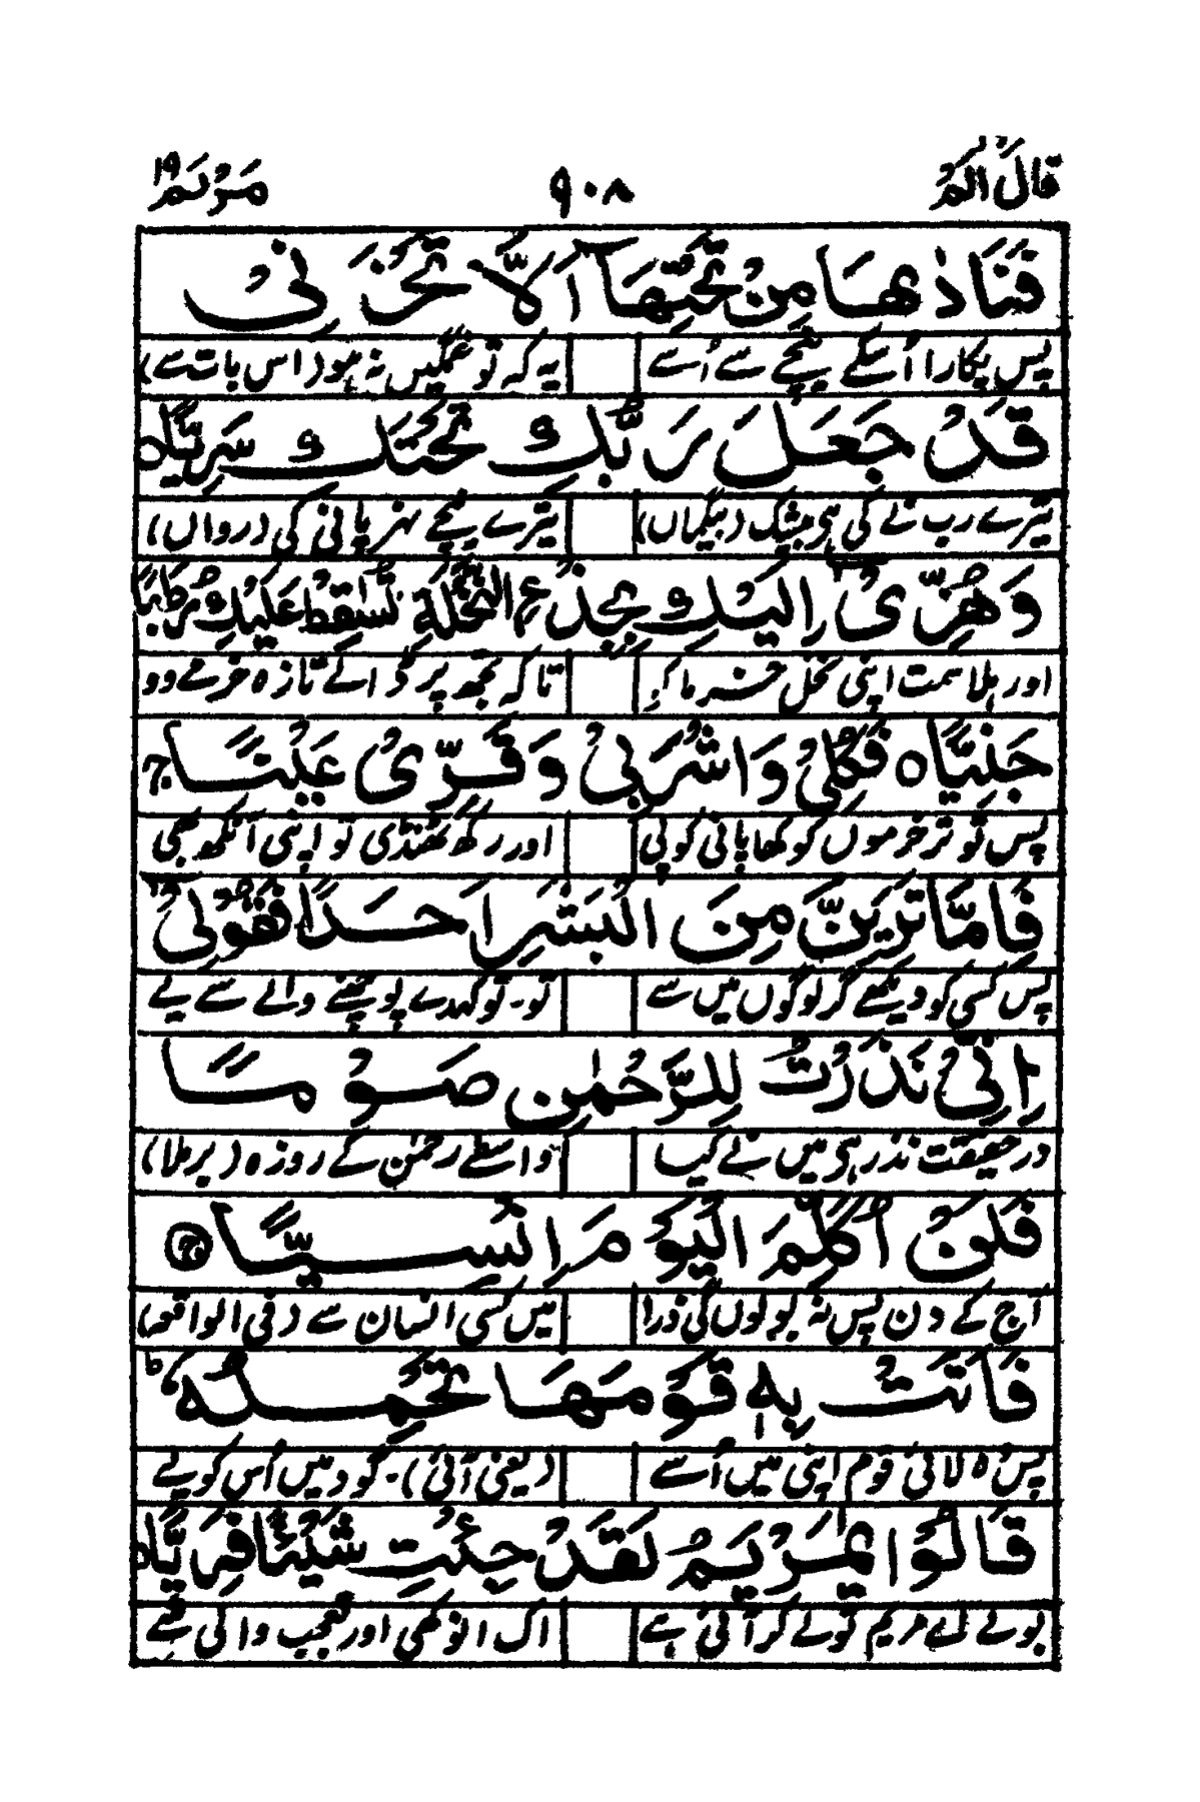 قَالَ اَلَمْ ۹۰۸ مَرْيَم ۱۹
فَنَادٰىهَا مِنْ تَحْتِهَاۤ اَلَّا تَحْزَنِىْ
پس پکارا اُسکے نیچے سے اُسے یہ کہ تو غمگیں نہ ہو (اس بات سے)
قَدْ جَعَلَ رَبُّكِ تَحْتَكِ سَرِيًّا ۝
تیرے رب نے کی ہی بیشک (بیگماں) تیرے نیچے نہر پانی کی (رواں)
وَهُزِّىْۤ اِلَيْكِ بِجِذْعِ النَّخْلَةِ تُسٰقِطْ عَلَيْكِ رُطَبًا
اور ہلا سمت اپنی نخل خرما کے تاکہ تجھ پر گرائے تازہ خرمے وو
جَنِيًّا ۝ فَكُلِىْ وَاشْرَبِىْ وَقَرِّىْ عَيْنًا ۚ
پس تو تر خرموں کو کھا پانی کو پی اور رکھ ٹھنڈی تو اپنی آنکھ بھی
فَاِمَّا تَرَيِنَّ مِنَ الْبَشَرِ اَحَدًا فَقُوْلِىْۤ
پس کسی کو دیکھے گر لوگوں میں سے تو۔ تو کہدے پوچھنے والے سے یے
اِنِّىْ نَذَرْتُ لِلرَّحْمٰنِ صَوْمًا
در حقیقت نذر ہی میں نے کیب واسطے رحمٰن کے روزہ (برملا)
فَلَنْ اُكَلِّمَ الْيَوْمَ اِنْسِيًّا ۝
آج کے دن پس نہ بولوں گی ذرا میں کسی انسان سے (فی الواقع)
فَاَتَتْ بِهٖ قَوْمَهَا تَحْمِلُهٗ ؕ
پس وہ لائی قوم اپنی میں اُسے (یعنی آئی)۔ گود میں اُس کو لیے
قَالُوْا يٰمَرْيَمُ لَقَدْ جِئْتِ شَيْئًا فَرِيًّا ۝
بولے اے مریم تو لے کر آئی ہے اک انوکھی اور تعجب والی شے